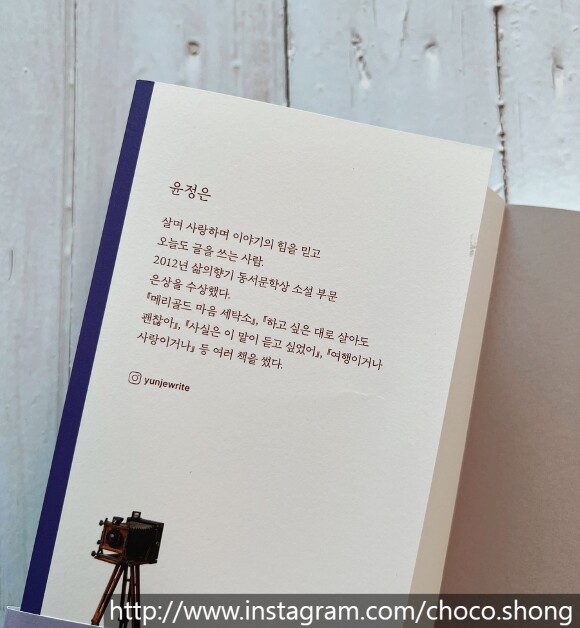 윤정은
살며 사랑하며 이야기의 힘을 믿고
오늘도 글을 쓰는 사람.
2012년 삶의향기 동서문학상 소설 부문
은상을 수상했다.
『메리골드 마음 세탁소』, 『하고 싶은 대로 살아도
괜찮아』, 『사실은 이 말이 듣고 싶었어』, 『여행이거나
사랑이거나』 등 여러 책을 썼다.
yunjewrite
http://www.instagram.com/choco.shong